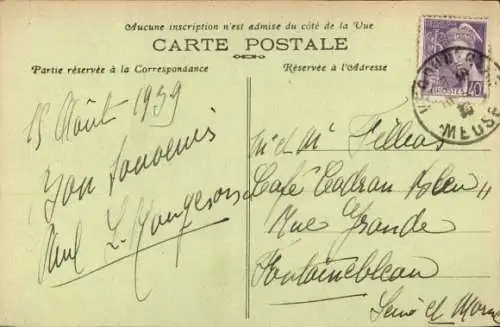 Aucune inscription n'est admise du côté de la Vue
CARTE POSTALE
Partie réservée à la Correspondance
Réservée à l'Adresse
15 Août 1939
Bon Souvenir
Paul
Mr et Me Fillias
Café Cadran Bleu
Rue Grande
Fontainebleau
Seine et Marne
POSTES
40
MEUSE